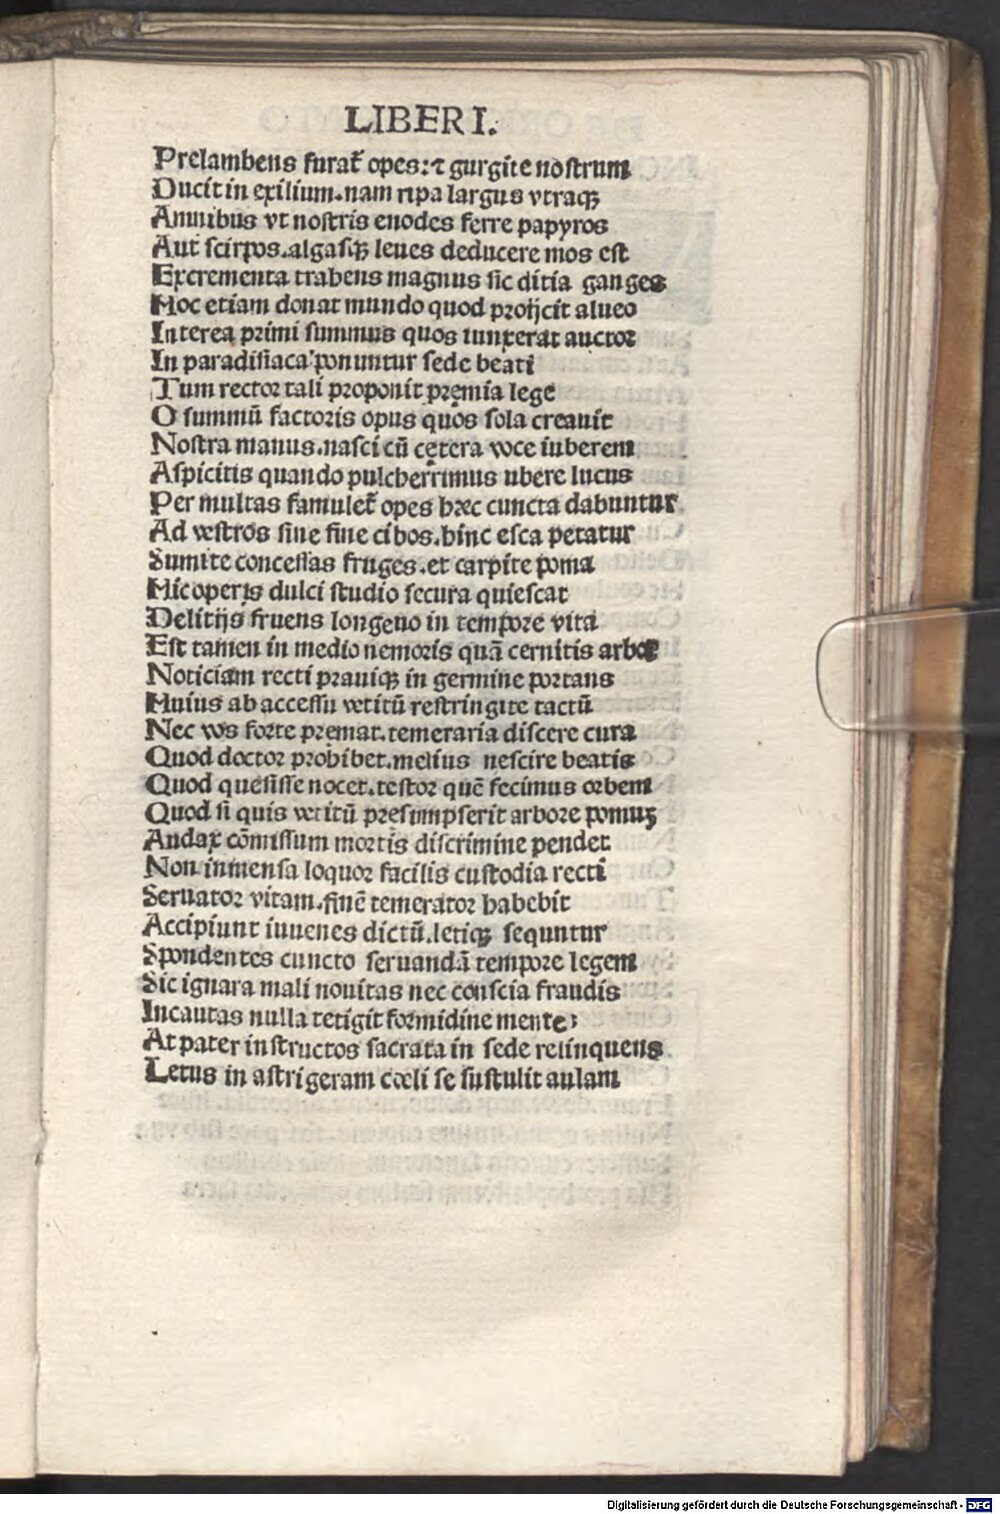 LIBER I.
Prelambens furat᷒ opes: ⁊ gurgite nostrum
Ducit in exilium. nam ripa largus vtraqꝫ
Amnibus vt nostris enodes ferre papyros
Aut scirpos. algasqꝫ leues deducere mos est
Excrementa trahens magnus sic ditia ganges
Hoc etiam donat mundo quod proijcit alueo
Interea primi summus quos iunxerat auctor
In paradisiaca ponuntur sede beati
Tum rector tali proponit pręmia lege
O summū factoris opus quos sola creauit
Nostra manus. nasci cū cętera voce iuberem
Aspicitis quando pulcherrimus ubere lucus
Per multas famulet᷒ opes hæc cuncta dabuntur
Ad vestros sine fine cibos. hinc esca petatur
Sumite concessas fruges. et carpite poma
Hic operis dulci studio secura quiescat
Delitijs fruens longeuo in tempore vita
Est tamen in medio nemoris quā cernitis arbor
Noticiam recti prauiqꝫ in germine portans
Huius ab accessu vetitū restringite tactū
Nec vos forte pręmat. temeraria discere cura
Quod doctor prohibet. melius nescire beatis
Quod quesisse nocet. testor quē fecimus orbem
Quod si quis vetitū pręsumpserit arbore pomuꝫ
Audax cōmissum mortis discrimine pendet
Non inmensa loquor facilis custodia recti
Seruator vitam. finē temerator habebit
Accipiunt iuuenes dictū. letiqꝫ sequntur
Spondentes cuncto seruandā tempore legem
Sic ignara mali nouitas nec conscia fraudis
Incautas nulla tetigit formidine mentes
At pater instructos sacrata in sede relinquens
Letus in astrigeram cœli se sustulit aulam
Digitalisierung gefördert durch die Deutsche Forschungsgemeinschaft - DFG